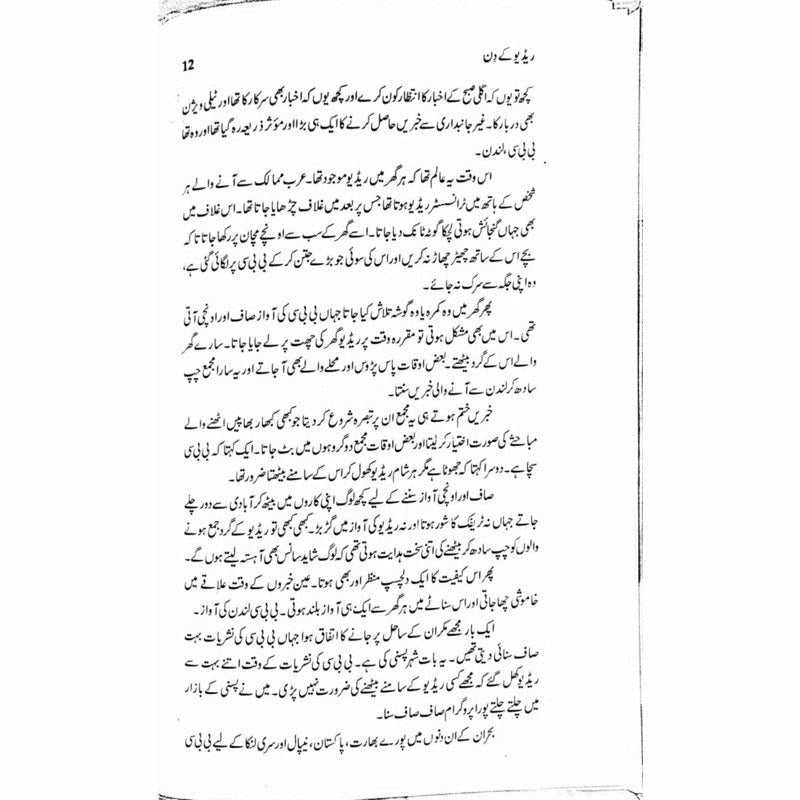 ریڈیو کے دن
12
کچھ تو یوں کہ اگلی صبح کے اخبار کا انتظار کون کرے اور کچھ یوں کہ اخبار بھی سرکار کا تھا اور ٹیلی ویژن
بھی دربار کا۔ غیر جانبداری سے خبریں حاصل کرنے کا ایک ہی بڑا اور مؤثر ذریعہ رہ گیا تھا اور وہ تھا
بی بی سی، لندن۔
اس وقت یہ عالم تھا کہ ہر گھر میں ریڈیو موجود تھا۔ عرب ممالک سے آنے والے ہر
شخص کے ہاتھ میں ٹرانسسٹر ریڈیو ہوتا تھا جس پر بعد میں غلاف چڑھایا جاتا تھا۔ اس غلاف میں
بھی جہاں گنجائش ہوتی لچکا گوٹہ ٹانک دیا جاتا۔ اسے گھر کے سب سے اونچے مچان پر رکھا جاتا تا کہ
بچے اس کے ساتھ چھیڑ چھاڑ نہ کریں اور اس کی سوئی جو بڑے جتن کر کے بی بی سی پر لگائی گئی ہے،
وہ اپنی جگہ سے سرک نہ جائے۔
پھر گھر میں وہ کمرہ یا وہ گوشہ تلاش کیا جاتا جہاں بی بی سی کی آواز صاف اور اونچی آتی
تھی۔ اس میں بھی مشکل ہوتی تو مقررہ وقت پر ریڈیو گھر کی چھت پر لے جایا جاتا۔ سارے گھر
والے اس کے گرد بیٹھتے۔ بعض اوقات پاس پڑوس اور محلے والے بھی آ جاتے اور یہ سارا مجمع چپ
سادھ کر لندن سے آنے والی خبریں سنتا۔
خبریں ختم ہوتے ہی یہ مجمع ان پر تبصرہ شروع کر دیتا جو کبھی کبھار بھاپیں اٹھنے والے
مباحثے کی صورت اختیار کر لیتا اور بعض اوقات مجمع دو گروہوں میں بٹ جاتا۔ ایک کہتا کہ بی بی سی
سچا ہے۔ دوسرا کہتا کہ جھوٹا ہے مگر ہر شام ریڈیو کھول کر اس کے سامنے بیٹھتا ضرور تھا۔
صاف اور اونچی آواز سننے کے لیے کچھ لوگ اپنی کاروں میں بیٹھ کر آبادی سے دور چلے
جاتے جہاں نہ ٹریفک کا شور ہوتا اور نہ ریڈیو کی آواز میں گڑبڑ۔ کبھی کبھی تو ریڈیو کے گرد جمع ہونے
والوں کو چپ سادھ کر بیٹھنے کی اتنی سخت ہدایت ہوتی تھی کہ لوگ شاید سانس بھی آہستہ لیتے ہوں گے۔
پھر اس کیفیت کا ایک دلچسپ منظر اور بھی ہوتا۔ عین خبروں کے وقت علاقے میں
خاموشی چھا جاتی اور اس سناٹے میں ہر گھر سے ایک ہی آواز بلند ہوتی۔ بی بی سی لندن کی آواز۔
ایک بار مجھے مکران کے ساحل پر جانے کا اتفاق ہوا جہاں بی بی سی کی نشریات بہت
صاف سنائی دیتی تھیں۔ یہ بات شہر پسنی کی ہے۔ بی بی سی کی نشریات کے وقت اتنے بہت سے
ریڈیو کھل گئے کہ مجھے کسی ریڈیو کے سامنے بیٹھنے کی ضرورت نہیں پڑی۔ میں نے پسنی کے بازار
میں چلتے چلتے پورا پروگرام صاف صاف سنا۔
بحران کے ان دنوں میں پورے بھارت، پاکستان، نیپال اور سری لنکا کے لیے بی بی سی